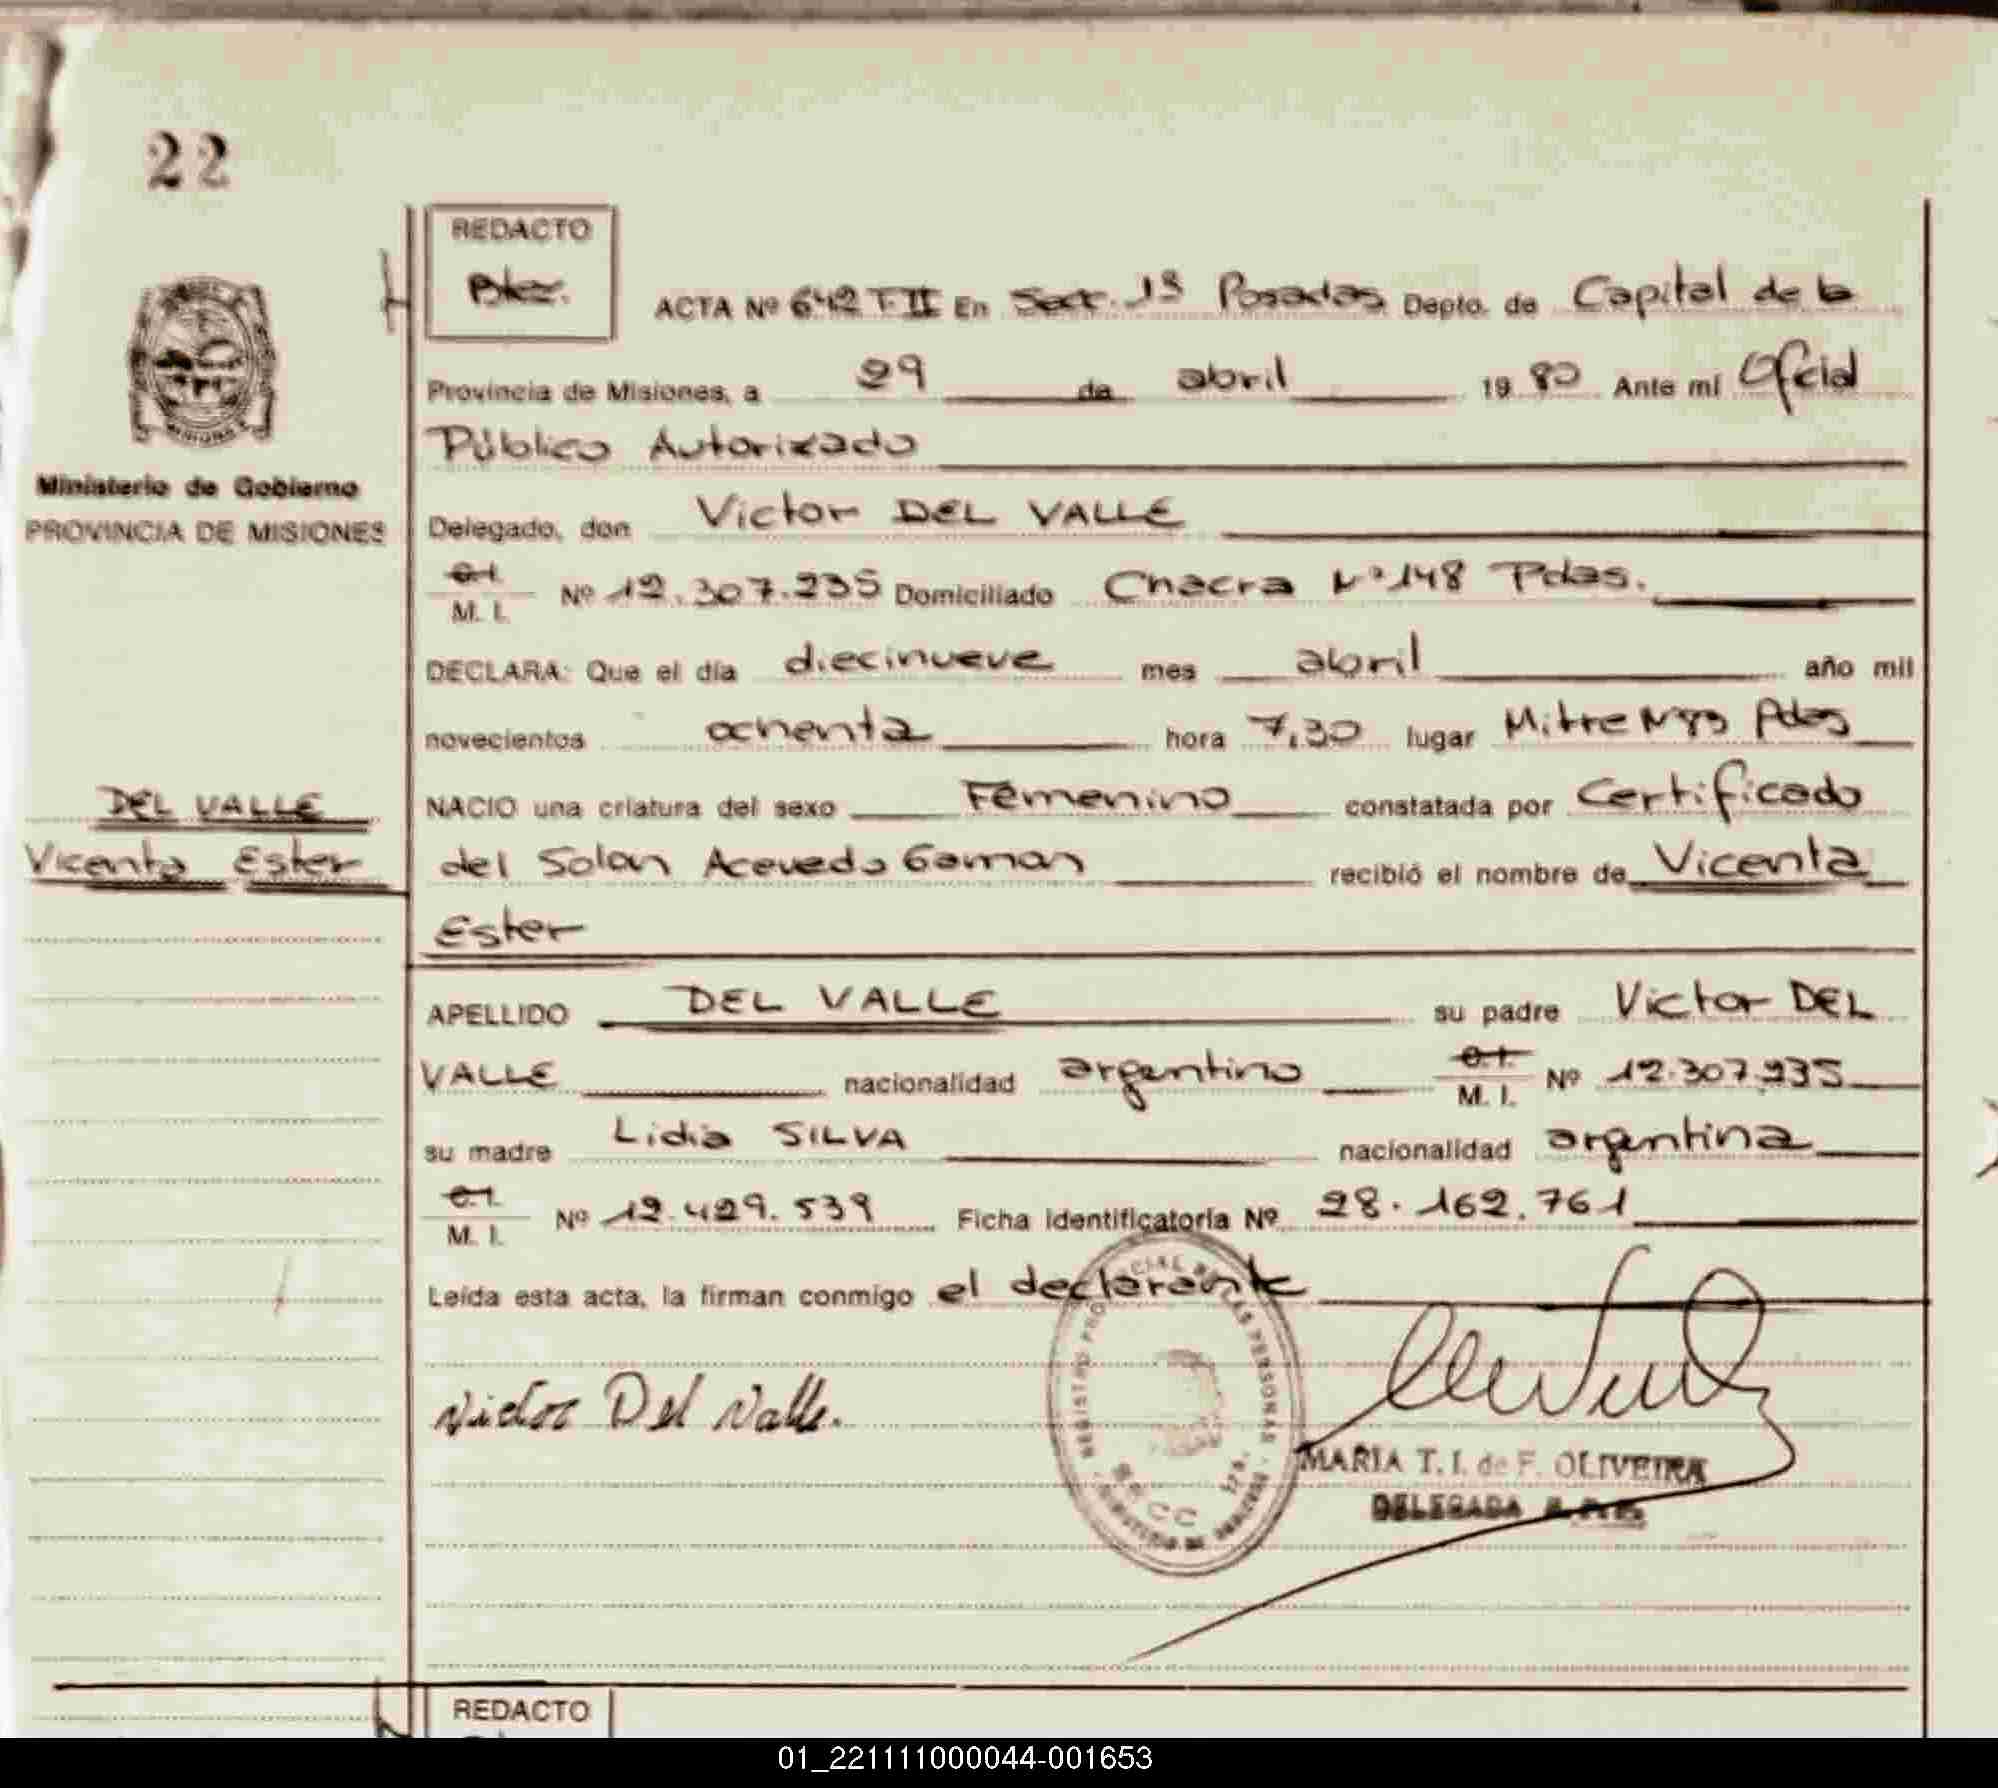 22
REDACTO
ACTA Nº 642 T.II En Secc. 1ª Posadas Depto. de Capital de la
Provincia de Misiones, a 29 de abril 1980 Ante mí Oficial
Público Autorizado
Ministerio de Gobierno
PROVINCIA DE MISIONES
Delegado, don Victor DEL VALLE
C.I.
M. I. Nº 12.307.235 Domiciliado Chacra Nº 148 Pdas.
DECLARA: Que el día diecinueve mes abril año mil
novecientos ochenta hora 7,30 lugar Mitre Nº 83 Pdas
DEL VALLE
Vicenta Ester
NACIO una criatura del sexo Femenino constatada por Certificado
del Solan Acevedo Gaman recibió el nombre de Vicenta
Ester
APELLIDO DEL VALLE su padre Victor DEL
VALLE nacionalidad argentino C.I. M. I. Nº 12.307.235
su madre Lidia SILVA nacionalidad argentina
C.I.
M. I. Nº 12.429.539 Ficha Identificatoria Nº 28.162.761
Leída esta acta, la firman conmigo el declarante
Victor Del Valle.
REGISTRO PROVINCIAL DE LAS PERSONAS
MARIA T. I. de F. OLIVEIRA
DELEGADA
REDACTO
01_221111000044-001653